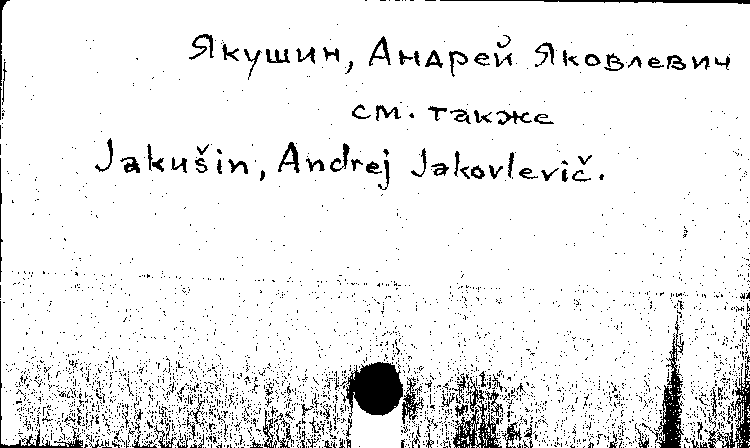 Якушин, Андрей Яковлевич
см. также
Jakušin, Andrej Jakovlevič.